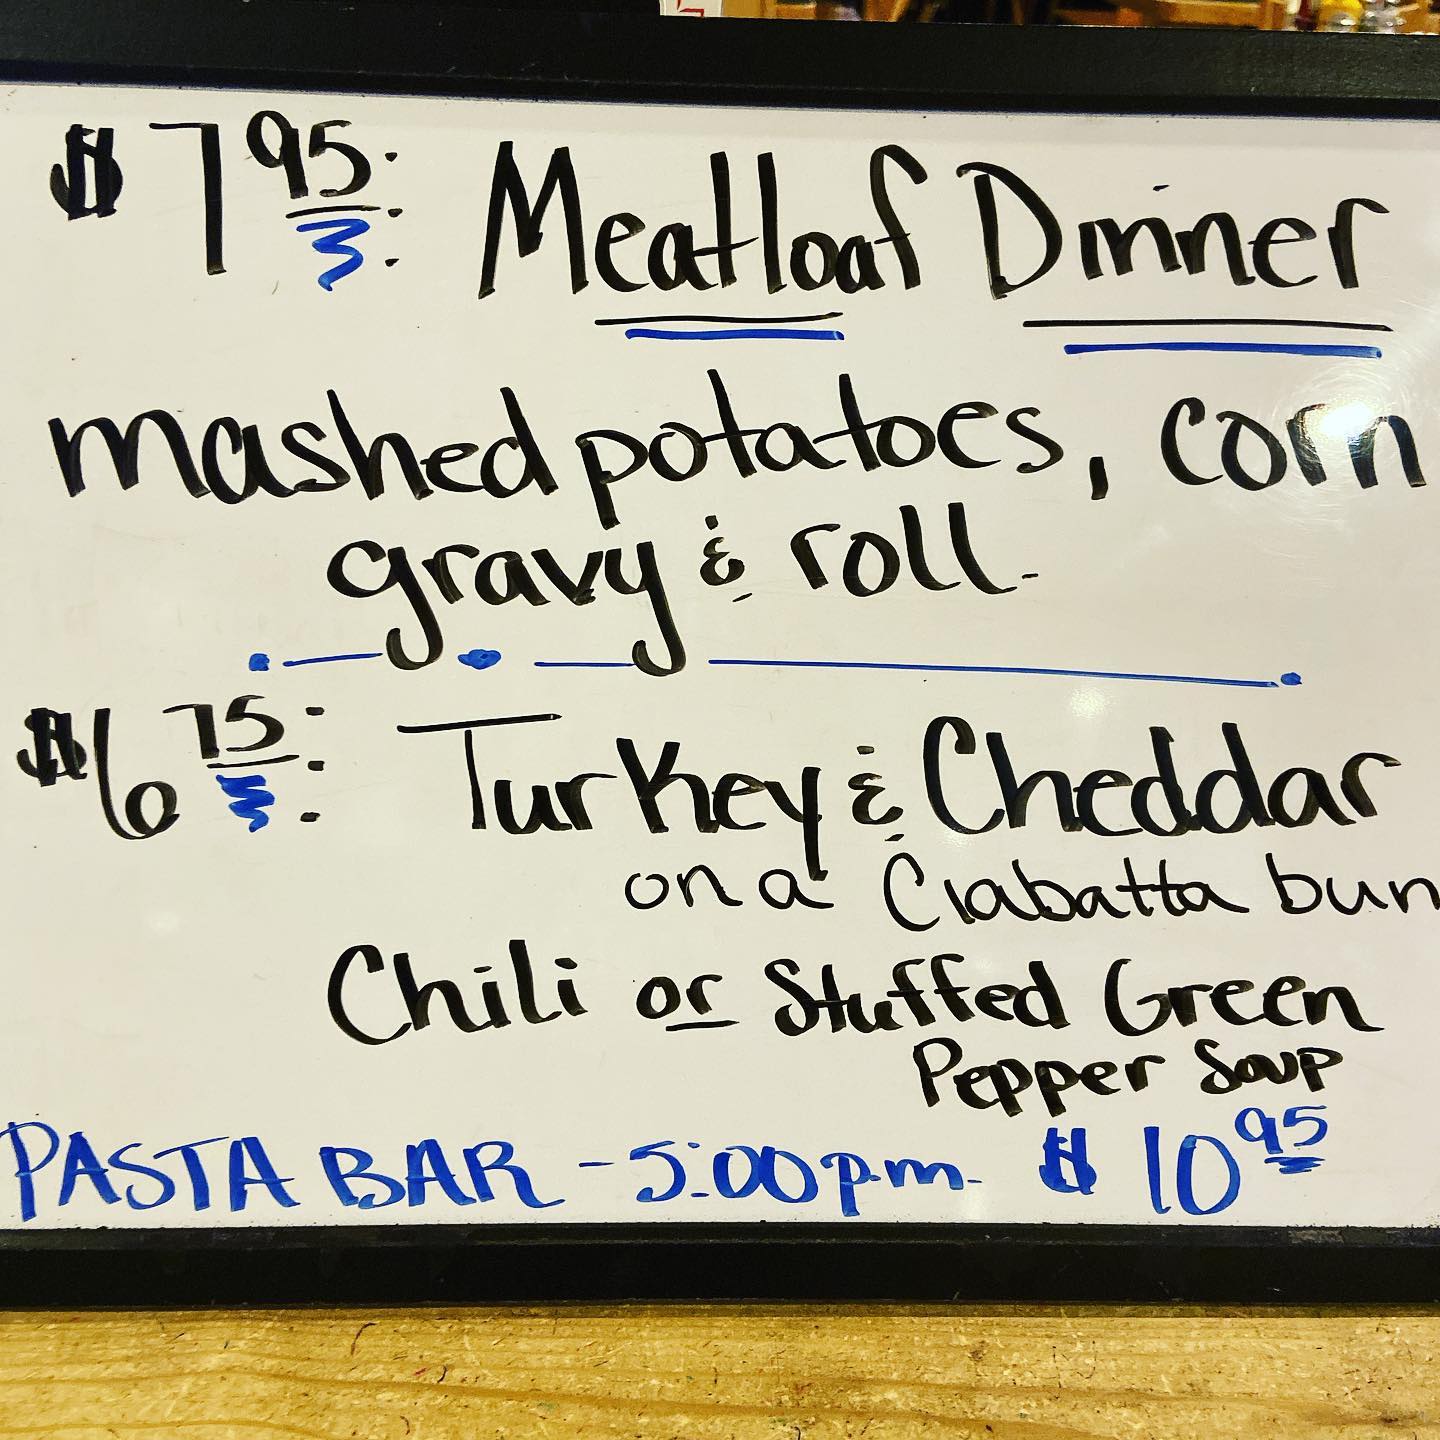 $7 95: Meatloaf Dinner
mashed potatoes, corn
gravy & roll.
$6 75: Turkey & Cheddar
on a Ciabatta bun
Chili or Stuffed Green
Pepper Soup
PASTA BAR - 5:00 p.m. $10 95